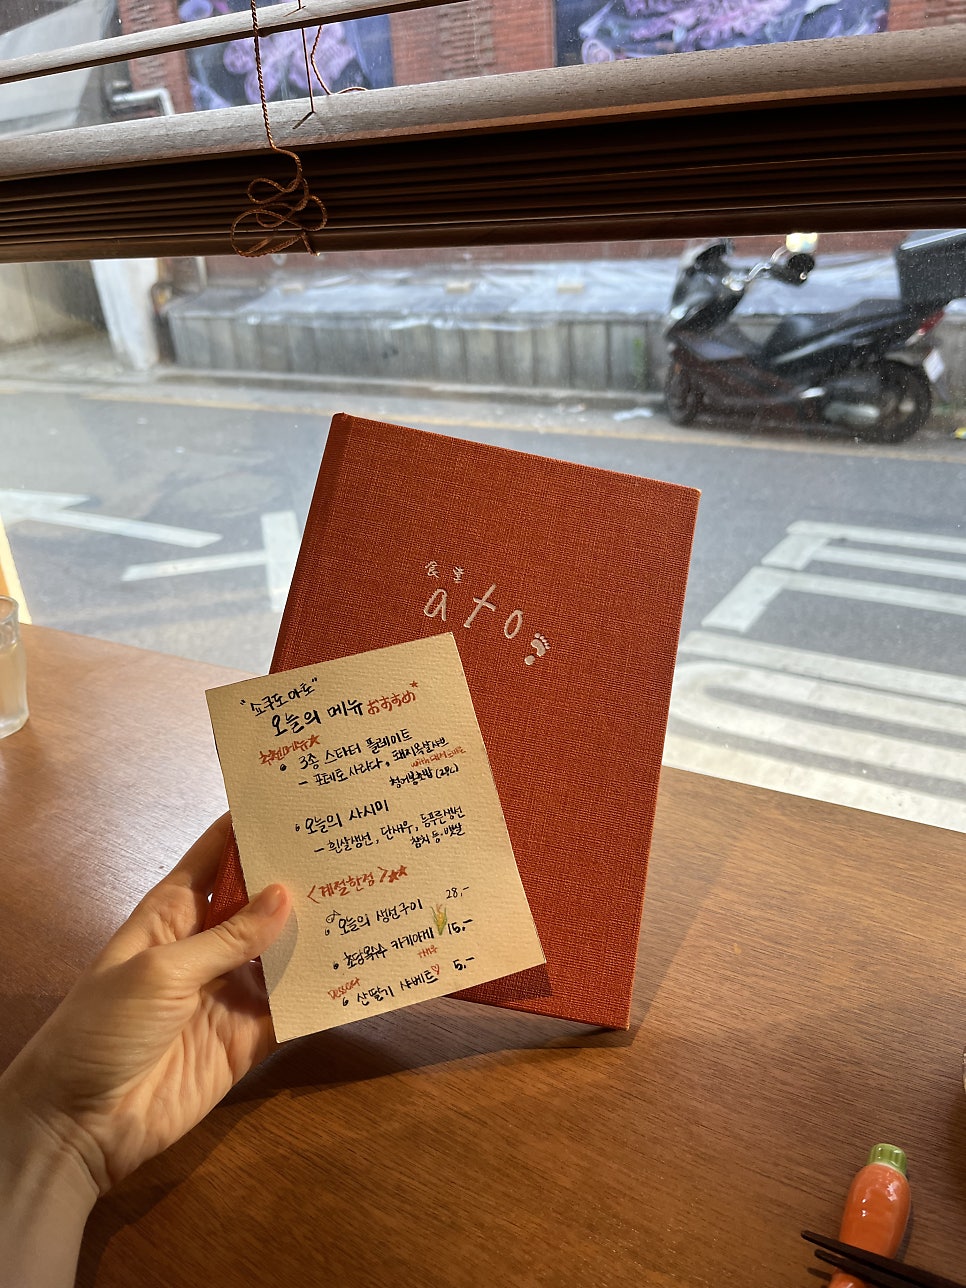 食堂
ato
"쇼쿠도 아토"
오늘의 메뉴 おすすめ
추천메뉴
• 3종 스타터 플레이트
- 포테토사라다, 돼지목살샤브
청어봉초밥 (2pc)
• 오늘의 사시미
- 흰살생선, 단새우, 등푸른생선
참치 등·뱃살
<계절한정>
• 오늘의 생선구이 28,-
• 초당옥수수 카키아게 15,-
Dessert
• 산딸기 샤베트 5,-